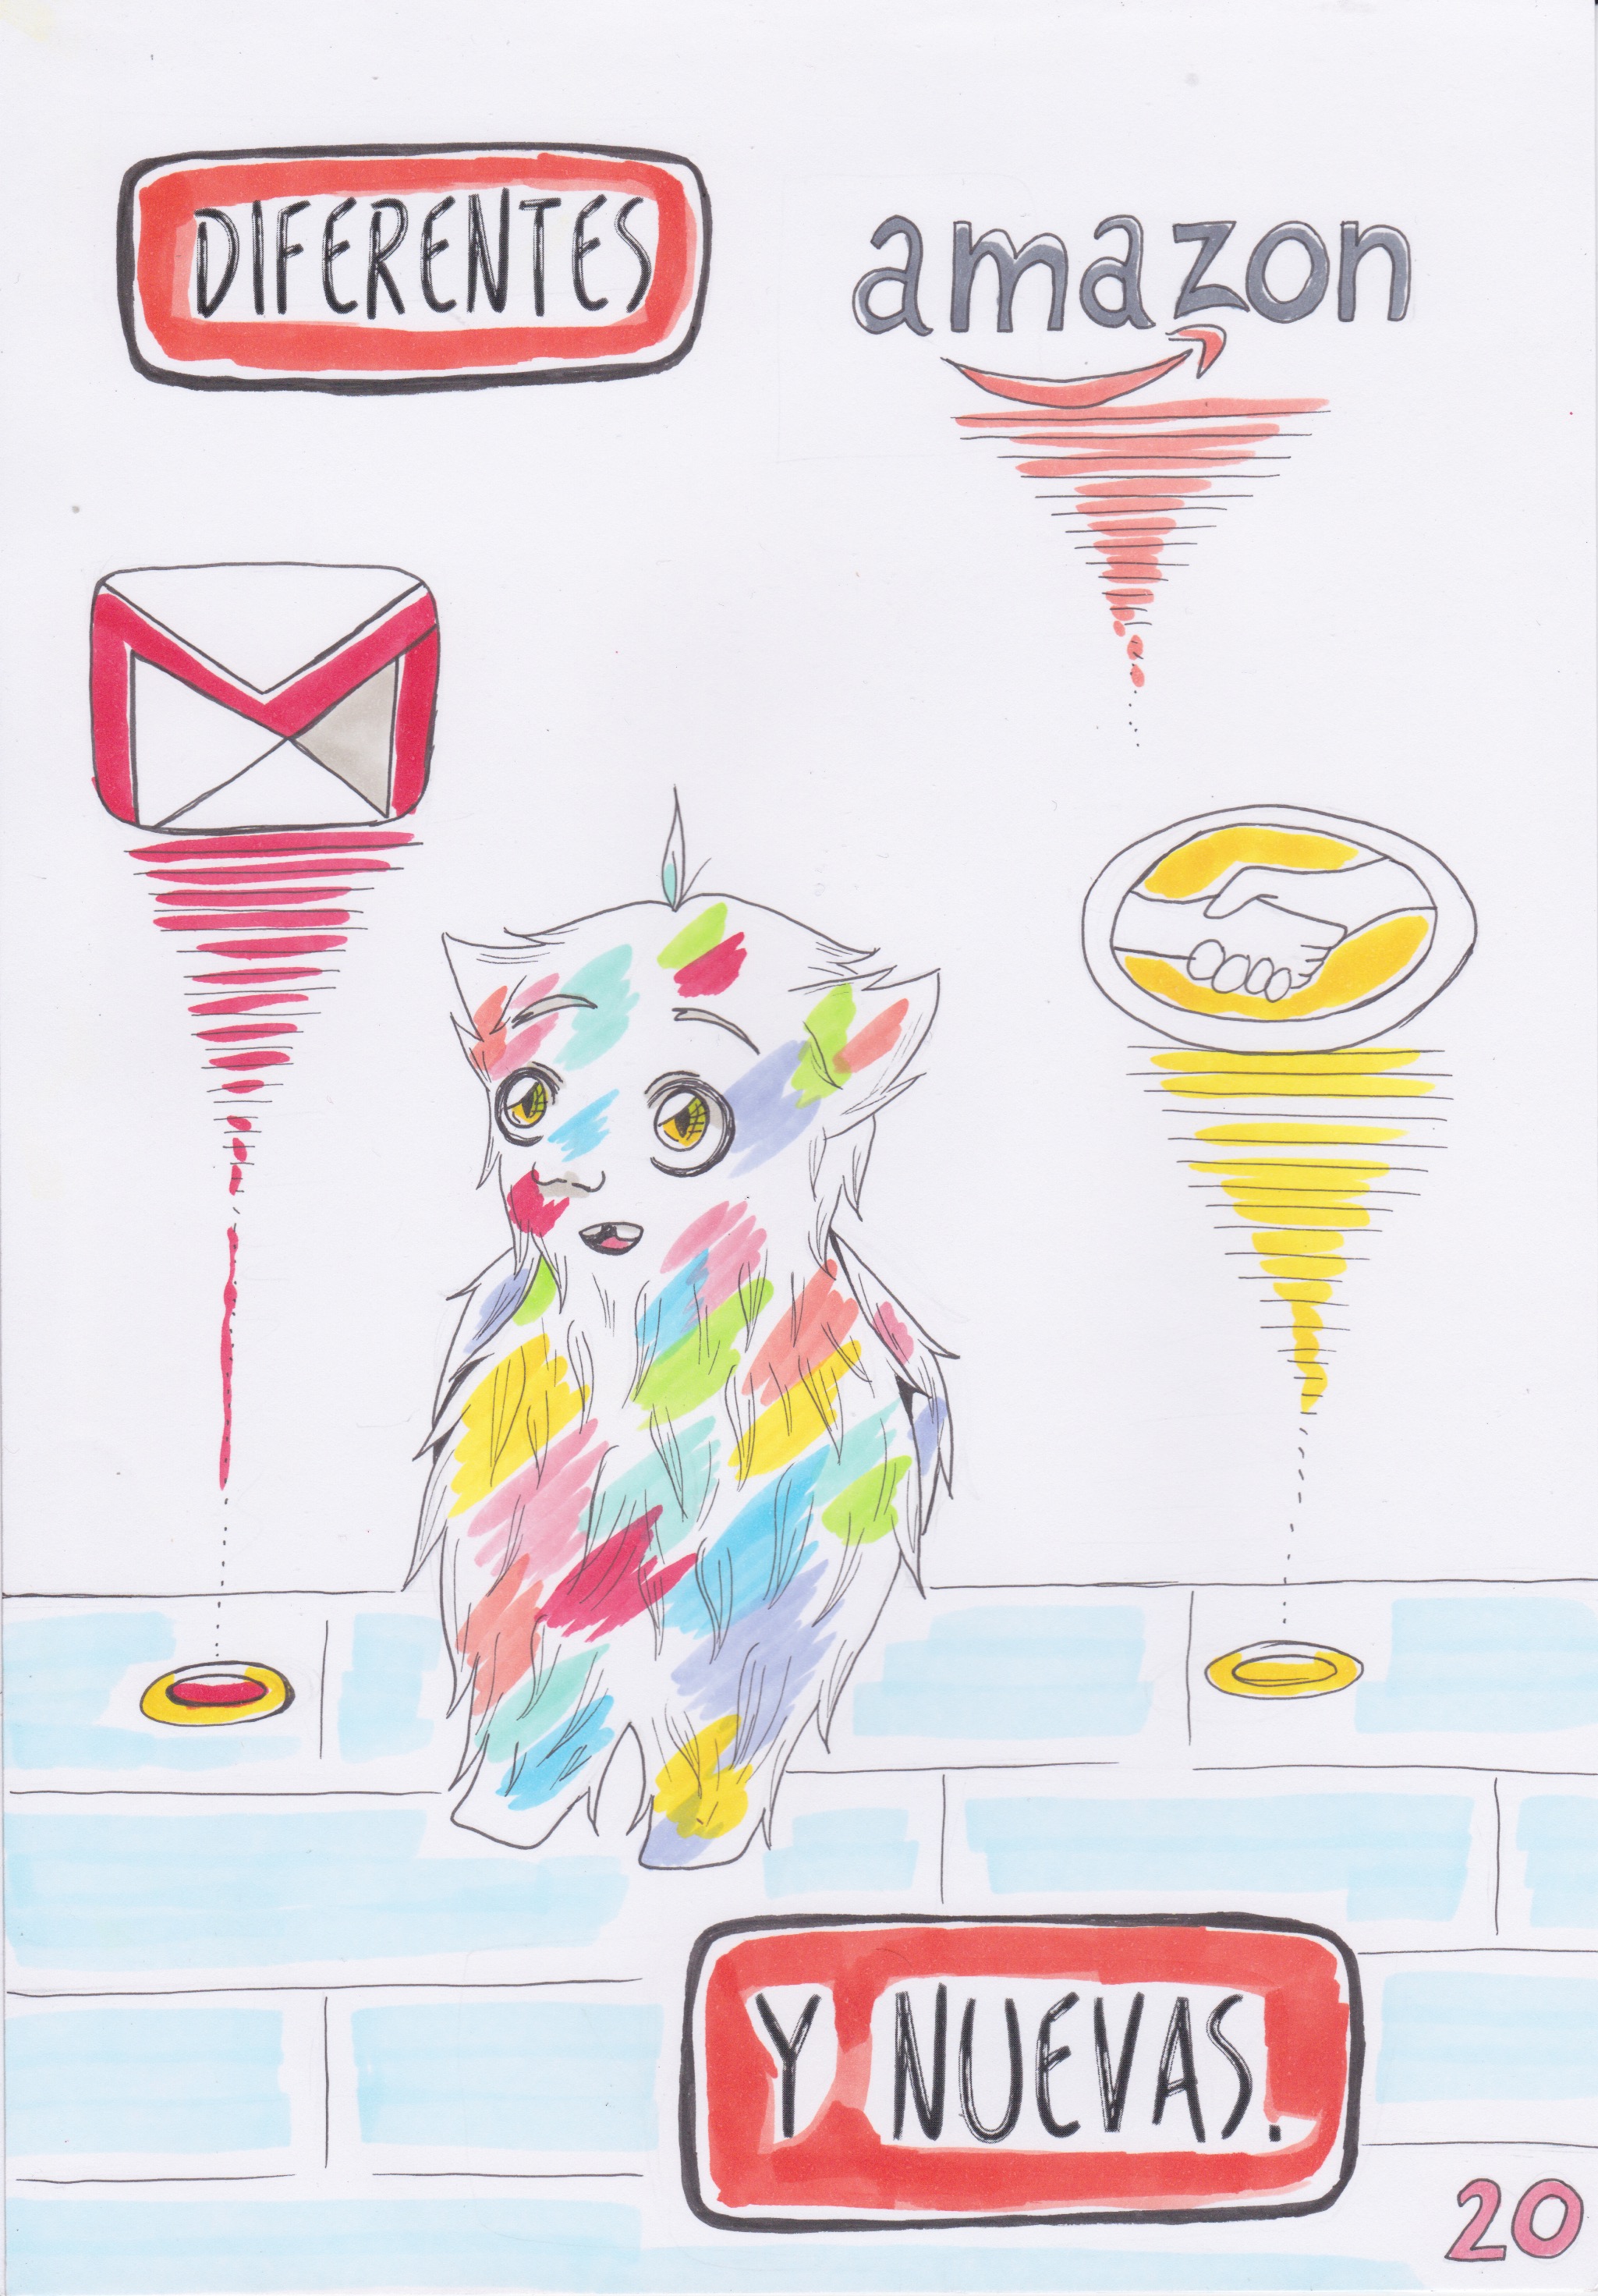 DIFERENTES
amazon
Y NUEVAS.
20